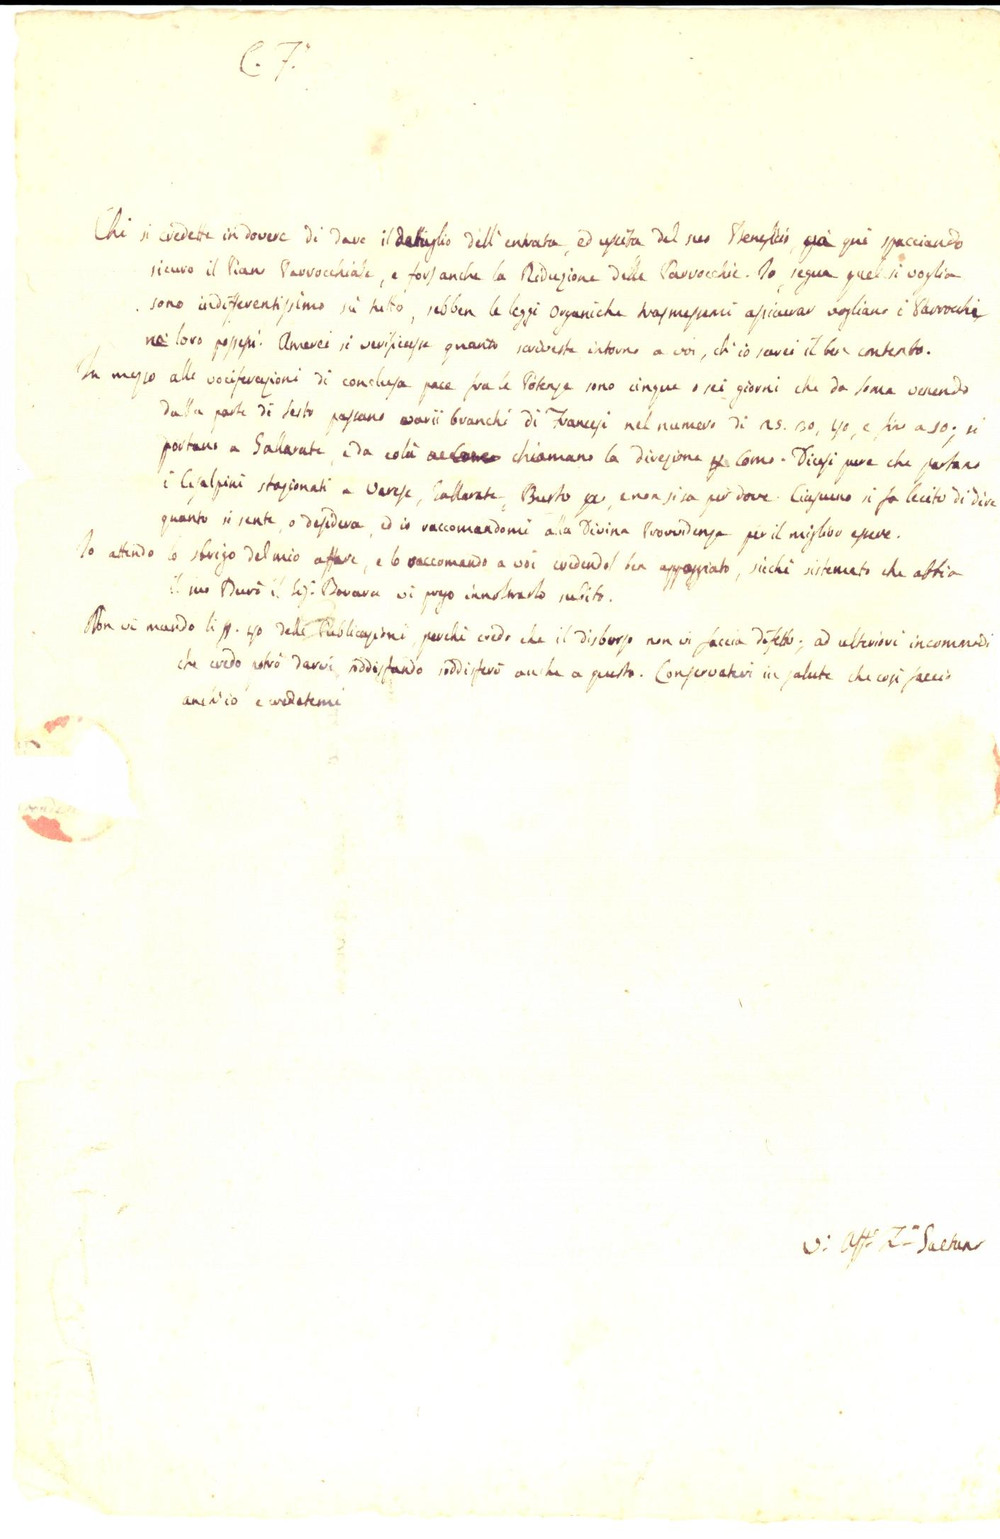 C. F.
Chi si credette in dovere di dare il dettaglio dell'entrata, ed uscita del suo Beneficio, già qui spacciando
sicuro il Pian Parrocchiale, e fors'anche la Riduzione delle Parrocchie. Io, segua quel si voglia
sono indifferentissimo su tutto, sebben le leggi organiche trasmessemi assicurar vogliano i Parrochi
ne' loro possessi. Amerei si verificasse quanto scriveste intorno a voi, ch'io sarei il ben contento.
In mezzo alle vociferazioni di conclusa pace fra le Potenze sono cinque o sei giorni che da Soma venendo
dalla parte di Sesto passano varii branchi di Francesi nel numero di 25. 30, 40, e fin a 50; si
portano a Gallarate, e da colà chiamano la direzione Como. Dicesi pure che partano
i Cisalpini stazionati a Varese, Gallarate, Busto e non si sa per dove. Ciascuno si fa lecito di dire
quanto si sente, o desidera, ed io raccomandomi alla Divina Provvidenza per il miglior essere.
Io attendo lo sbrigo del mio affare, e lo raccomando a voi credendol ben appoggiato, sicchè sistemato che abbia
il suo Durò il Sig.r Bovara vi prego innoltrarlo subito.
Non vi mando li 40 delle Pubblicazioni, perchè credo che il disborso non vi faccia difetto; ad ulteriori incommodi
che credo potrò darvi, soddisfando soddisferò anche a questo. Conservatevi in salute che così faccio
anch'io e credetemi
V.o Aff.o Z.o Gaetano